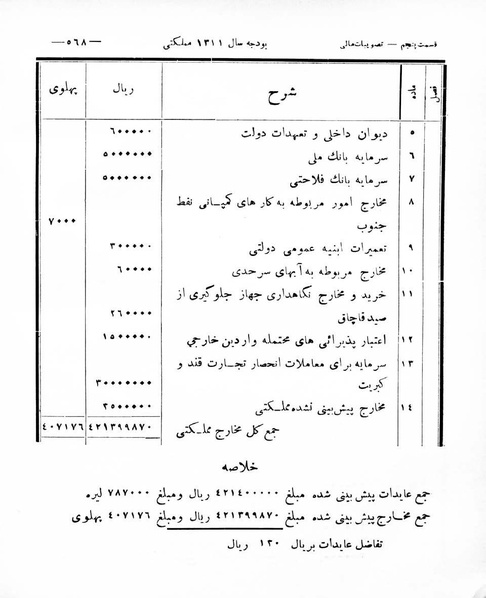 قسمت پنجم — تصویبات مالی
بودجه سال ۱۳۱۱ مملکتی
—۵۶۸—
فصل ماده شرح ریال پهلوی
۵ دیوان داخلی و تعهدات دولت ۶۰۰۰۰۰۰
۶ سرمایه بانک ملی ۵۰۰۰۰۰۰
۷ سرمایه بانک فلاحتی ۵۰۰۰۰۰۰
۸ مخارج امور مربوطه به کار های کمپانی نفط
جنوب ۷۰۰۰
۹ تعمیرات ابنیه عمومی دولتی ۳۰۰۰۰۰
۱۰ مخارج مربوطه به آبهای سرحدی ۶۰۰۰۰
۱۱ خرید و مخارج نگاهداری جهاز جلوگیری از
صید قاچاق ۲۶۰۰۰۰
۱۲ اعتبار پذیرائی های محتمله واردین خارجی ۱۵۰۰۰۰۰
۱۳ سرمایه برای معاملات انحصار تجارت قند و
کبریت ۳۰۰۰۰۰۰۰
۱۴ مخارج پیش بینی نشده مملکتی ۲۵۰۰۰۰۰
جمع کل مخارج مملکتی ۴۲۱۳۹۹۸۷۰ ۴۰۷۱۷۶
خلاصه
جمع عایدات پیش بینی شده مبلغ ۴۲۱۴۰۰۰۰۰ ریال ومبلغ ۷۸۷۰۰۰ لیره
جمع مخارج پیش بینی شده مبلغ ۴۲۱۳۹۹۸۷۰ ریال ومبلغ ۴۰۷۱۷۶ پهلوی
تفاضل عایدات بریال ۱۳۰ ریال